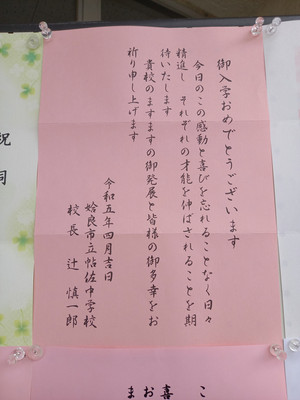 御入学おめでとうございます
今日のこの感動と喜びを忘れることなく日々
精進し　それぞれの才能を伸ばされることを期
待いたします
貴校のますますの御発展と皆様の御多幸をお
祈り申し上げます
令和五年四月吉日
姶良市立帖佐中学校
校長　辻　慎一郎
祝
詞
こ
喜
お
ま